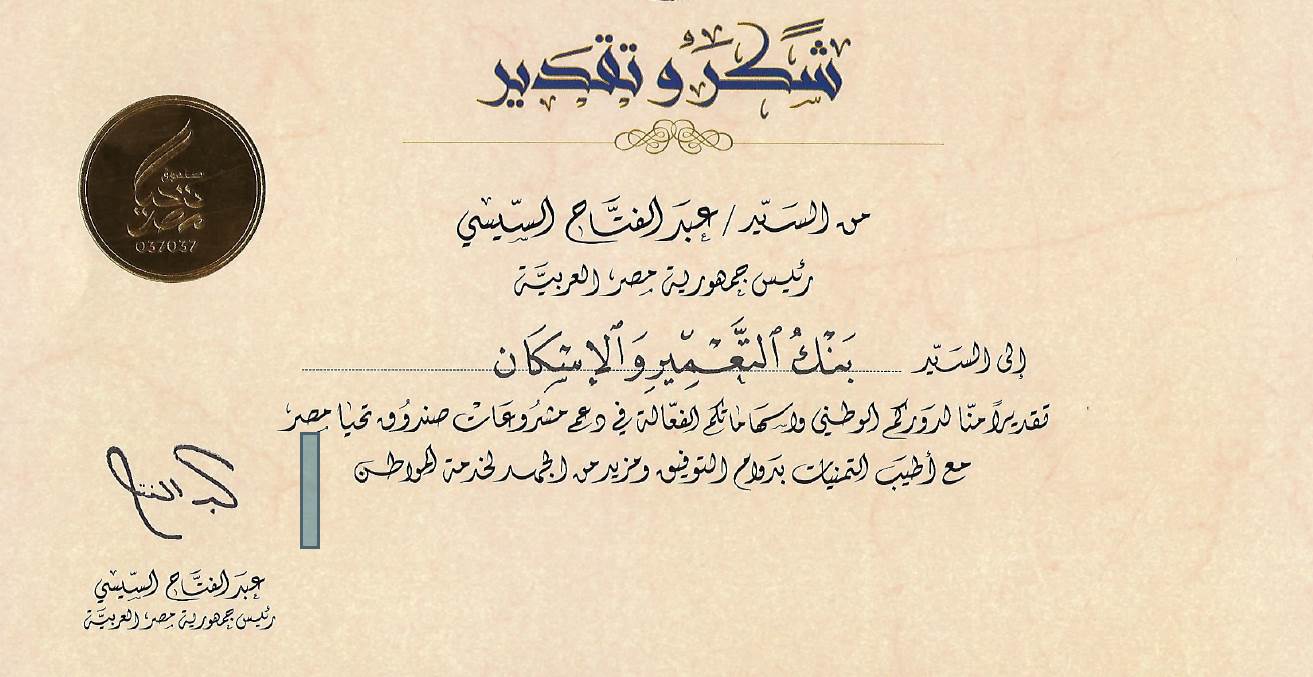 شكر و تقدير
من السيّد / عبد الفتّاح السّيسي
رئيس جمهورية مصر العربيّة
إلى السيّد بَنْكُ التَّعْمِيرِ وَالإِسْكَان
تقديراً منّا لدوركم الوطني وإسهاماتكم الفعّالة في دعم مشروعات صندوق تحيا مصر
مع أطيب التمنيات بدوام التوفيق ومزيد من الجهد لخدمة المواطن
صندوق
تحيا
مصر
037037
عبد الفتاح
عبد الفتّاح السّيسي
رئيس جمهورية مصر العربيّة